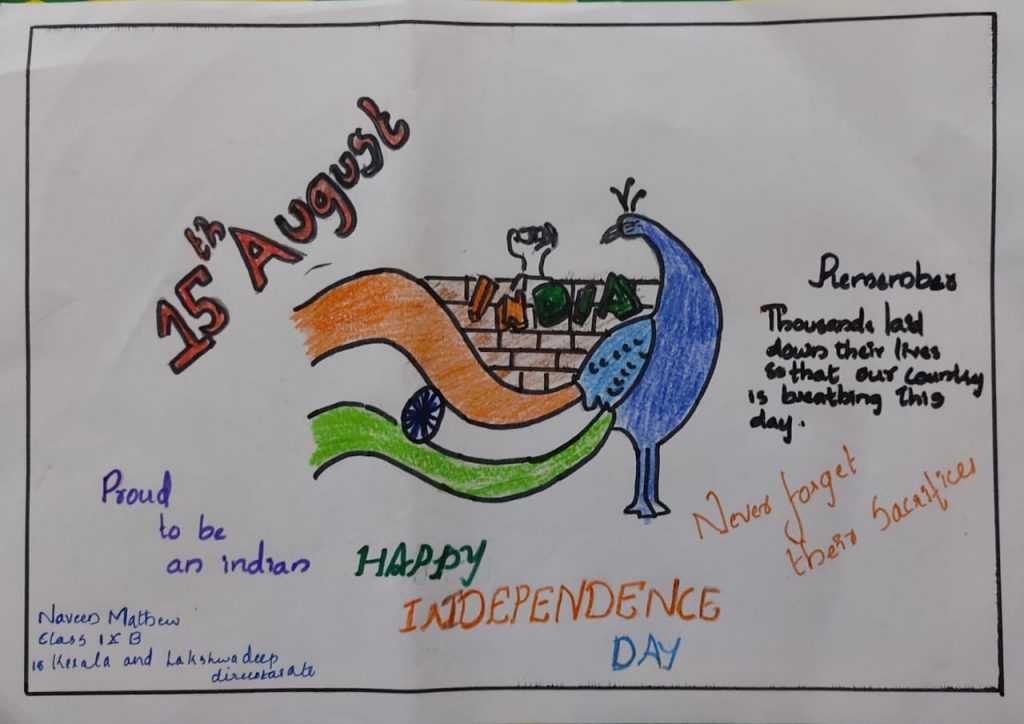 15th August
INDIA
Remember
Thousands laid
down their lives
so that our country
is breathing This
day.
Never forget
their sacrifices
Proud
to be
an indian
HAPPY
INDEPENDENCE
DAY
Naveen Mathew
Class IX B
18 Kerala and Lakshwadeep
directorate